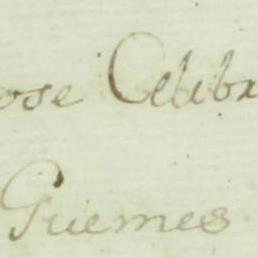 ose Celibr
Guemes